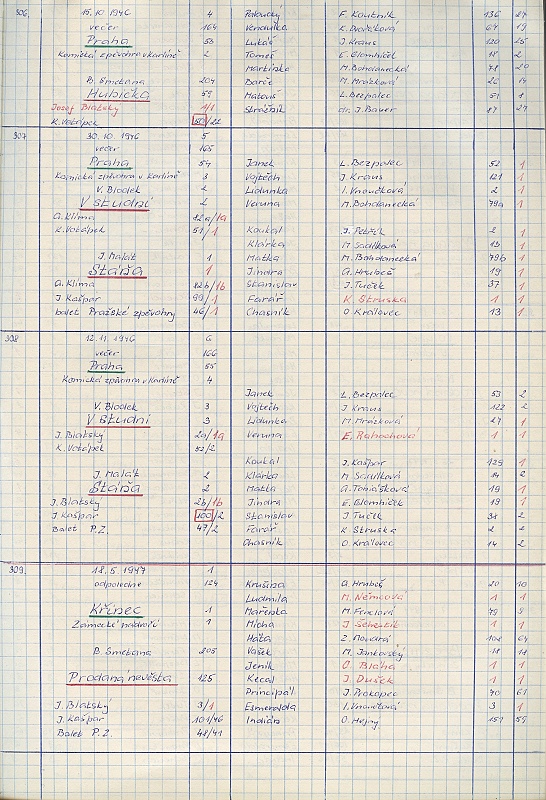 306 15.10 1946 4 Paloucký F. Koutník 136 24
večer 164 Vendulka K. Dvořáková 64 19
Praha 53 Lukáš J. Kraus 120 25
Komická zpěvohra v Karlíně 2 Tomeš E. Glombíček 18 2
Martinka M. Bohdanecká 78 20
B. Smetana 204 Barče M. Mrázková 26 14
Hubička 59 Matouš L. Bezpalec 51 1
Josef Blatský 1/1 Strážník dr. J. Bauer 17 27
K. Votápek 50/22
307 30.10.1946 5
večer 165
Praha 54 Janek L. Bezpalec 52 1
Komická zpěvohra v Karlíně 3 Vojtěch J. Kraus 121 1
V. Blodek 2 Lidunka I. Vnoučková 2 1
V studni 2 Veruna M. Bohdanecká 79a 1
A. Klíma 82a/1a
K. Votápek 51/1 Koukal J. Petřík 2 1
Klárka M. Sadílková 13 1
J. Malát 1 Matka M. Bohdanecká 79b 1
Stáňa 1 Jindra A. Hrubeš 19 1
A. Klíma 82b/1b Stanislav J. Tuček 37 1
J. Kašpar 99/1 Farář K. Struska 1 1
balet Pražské zpěvohry 46/1 Chasník O. Královec 13 1
308 12.11.1946 6
večer 166
Praha 55
Komická zpěvohra v Karlíně 4
Janek L. Bezpalec 53 2
V. Blodek 3 Vojtěch J. Kraus 122 2
V studni 3 Lidunka M. Mrázková 27 1
J. Blatský 2a/1a Veruna E. 1 1
K. Votápek 52/2
Koukal J. Kašpar 129 1
J. Malát 2 Klárka M. Sadílková 14 2
Stáňa 2 Matka A. Tomášková 19 1
J. Blatský 2b/1b Jindra E. Glombíček 19 1
J. Kašpar 100/2 Stanislav J. Tuček 38 2
Balet P.Z. 47/2 Farář K. Struska 2 2
Chasník O. Královec 14 2
309. 18.5.1947 1
odpoledne 124 Krušina A. Hrubeš 20 10
Ludmila M. Němcová 1 1
Křinec 1 Mařenka M. Fenclová 79 9
Zámecké nádvoří 1 Mícha J. 1 1
Háta Z. 102 64
B. Smetana 205 Vašek M. Jankovský 18 11
Jeník O. Bláha 1 1
Prodaná nevěsta 125 Kecal J. Dušek 1 1
Principál J. Prokopec 70 61
J. Blatský 3/1 Esmeralda I. Vnoučková 3 1
J. Kašpar 101/46 Indián O. Hejný 151 59
Balet P.Z. 48/41